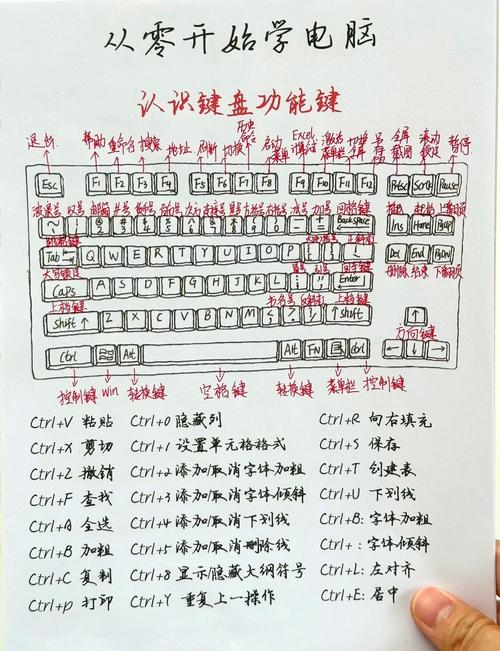 从零开始学电脑
认识键盘功能键
退出 帮助 重命名 搜索 地址 刷新 切换 历史命令 启动菜单 Excel计算 激活菜单栏 切换全屏 全屏截图 滚动锁定 暂停
Esc F1 F2 F3 F4 F5 F6 F7 F8 F9 F10 F11 F12 Prtsc Scrlk Pause
Backspace Ins Home PgUP
Tab Q W E R T Y U I O P Del End PgDN
删除 结束 下翻页
大写锁定
Caps A S D F G H J K L Enter
上档键 书名号 上档键
Shift ↑ Z X C V B N M ↑ Shift ↑
方向键
Ctrl Alt Alt FN Ctrl ← ↓ →
控制键 win 转换键 空格键 转换键 菜单栏 控制键
Ctrl+V 粘贴 Ctrl+0 隐藏列 Ctrl+R 向右填充
Ctrl+X 剪切 Ctrl+1 设置单元格格式 Ctrl+S 保存
Ctrl+Z 撤销 Ctrl+2 添加/取消字体加粗 Ctrl+T 创建表
Ctrl+F 查找 Ctrl+3 添加/取消字体倾斜 Ctrl+U 下划线
Ctrl+A 全选 Ctrl+4 添加/取消下划线 Ctrl+B: 字体加粗
Ctrl+B 加粗 Ctrl+5 添加/取消删除线 Ctrl+ : 字体倾斜
Ctrl+C 复制 Ctrl+8 显示隐藏大纲符号 Ctrl+L: 左对齐
Ctrl+P 打印 Ctrl+Y 重复上一操作 Ctrl+E: 居中